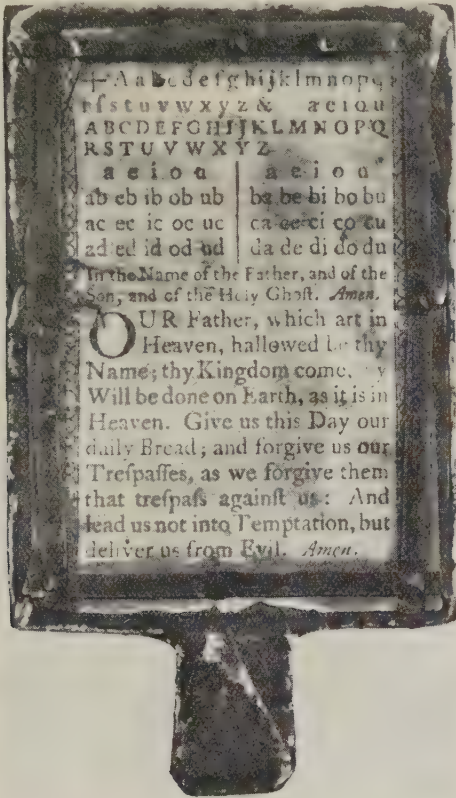 +Aabcdefghijklmnopq
rſstuvwxyz& aeiou
ABCDEFGHIJKLMNOPQ
RSTUVWXYZ
a e i o u | a e i o u
ab eb ib ob ub | ba be bi bo bu
ac ec ic oc uc | ca ce ci co cu
ad ed id od ud | da de di do du
In the Name of the Father, and of the
Son, and of the Holy Ghoſt. Amen.
OUR Father, which art in
Heaven, hallowed be thy
Name; thy Kingdom come,
Will be done on Earth, as it is in
Heaven. Give us this Day our
daily Bread; and forgive us our
Treſpaſſes, as we forgive them
that treſpaſs againſt us: And
lead us not into Temptation, but
deliver us from Evil. Amen.